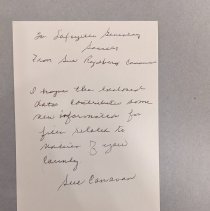 To Lafayette Genealogy
Society
From Sue Rydberg Canavan
I hope the enclosed
data contributes some
new information for
files related to
families of your
County
Sue Canavan